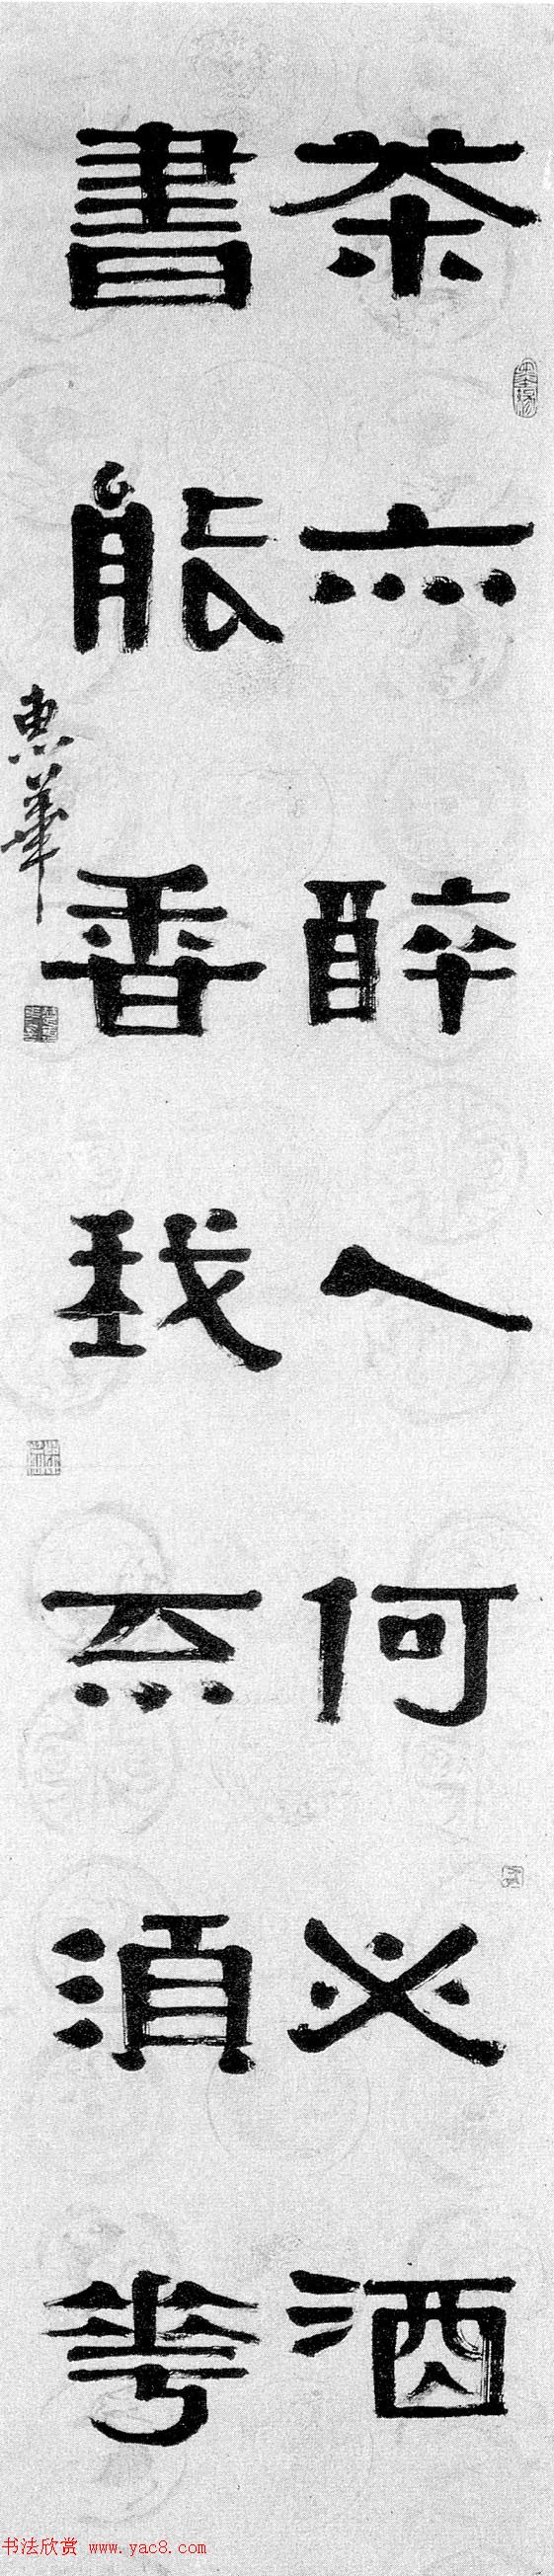 茶亦醉人何必酒
書能香我不須花
惠華
书法欣赏 www.yac8.com